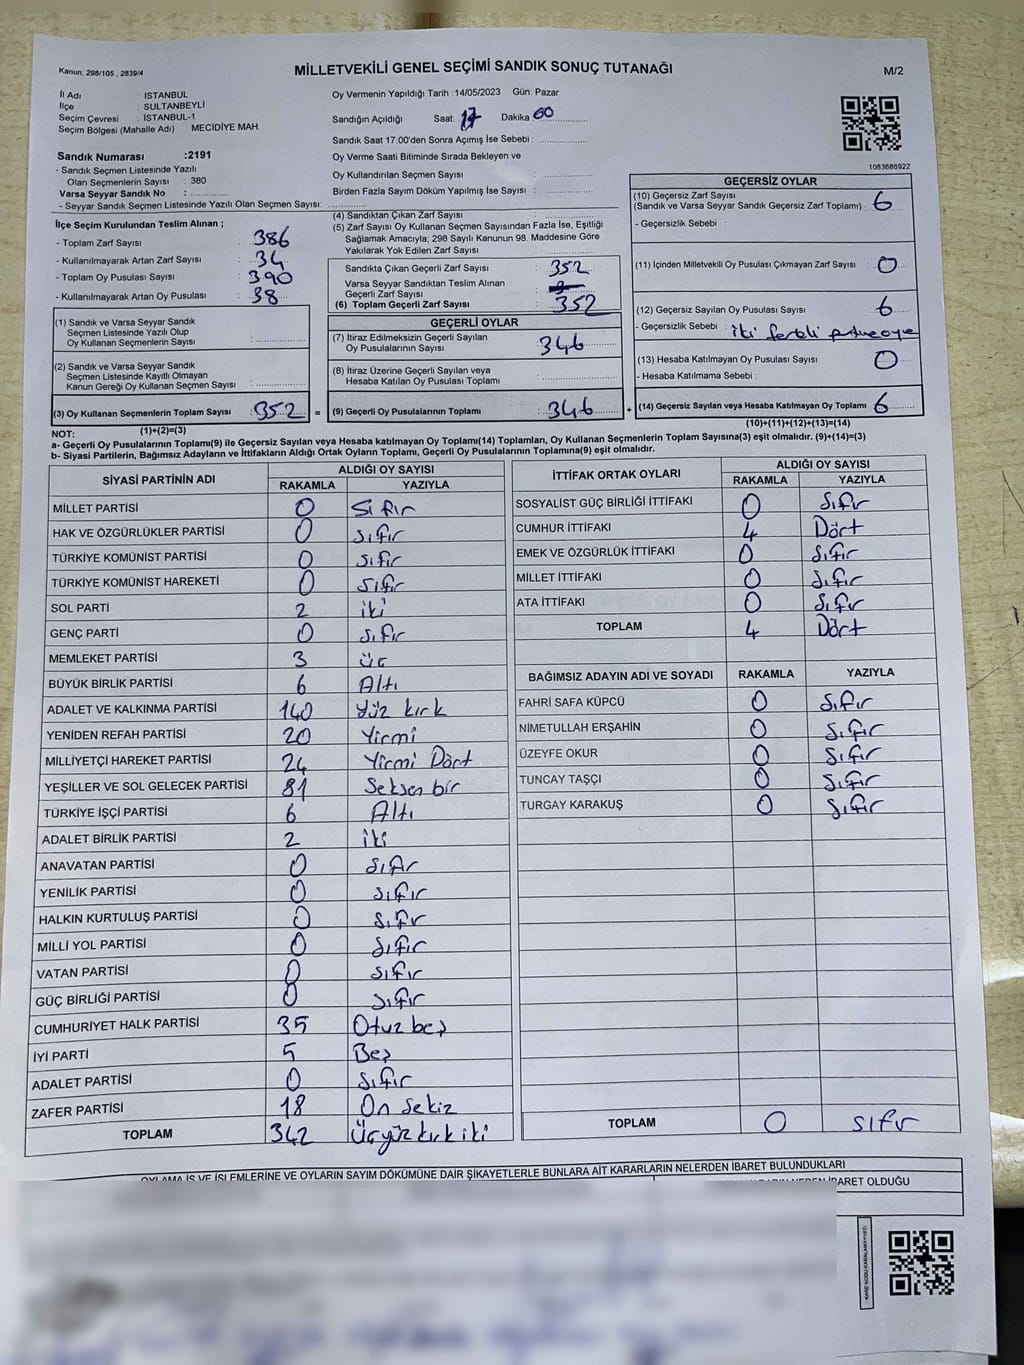 Kanun, 298/105 , 2839/4
MİLLETVEKİLİ GENEL SEÇİMİ SANDIK SONUÇ TUTANAĞI
M/2
İl Adı : İSTANBUL
İlçe : SULTANBEYLİ
Seçim Çevresi : İSTANBUL-1
Seçim Bölgesi (Mahalle Adı) MECİDİYE MAH.
Oy Vermenin Yapıldığı Tarih :14/05/2023 Gün: Pazar
Sandığın Açıldığı Saat: 17 Dakika 00
Sandık Saat 17:00'den Sonra Açımış İse Sebebi :
Oy Verme Saati Bitiminde Sırada Bekleyen ve
Oy Kullandırılan Seçmen Sayısı :
Birden Fazla Sayım Döküm Yapılmış İse Sayısı :
1083666922
Sandık Numarası :2191
- Sandık Seçmen Listesinde Yazılı
Olan Seçmenlerin Sayısı : 380
Varsa Seyyar Sandık No :
- Seyyar Sandık Seçmen Listesinde Yazılı Olan Seçmen Sayısı:
İlçe Seçim Kurulundan Teslim Alınan ;
- Toplam Zarf Sayısı : 386
- Kullanılmayarak Artan Zarf Sayısı : 34
- Toplam Oy Pusulası Sayısı : 390
- Kullanılmayarak Artan Oy Pusulası : 38
(1) Sandık ve Varsa Seyyar Sandık
Seçmen Listesinde Yazılı Olup
Oy Kullanan Seçmenlerin Sayısı :
(2) Sandık ve Varsa Seyyar Sandık
Seçmen Listesinde Kayıtlı Olmayan
Kanun Gereği Oy Kullanan Seçmen Sayısı :
(3) Oy Kullanan Seçmenlerin Toplam Sayısı : 352 =
(1)+(2)=(3)
(4) Sandıktan Çıkan Zarf Sayısı :
(5) Zarf Sayısı Oy Kullanan Seçmen Sayısından Fazla İse, Eşitliği
Sağlamak Amacıyla; 298 Sayılı Kanunun 98. Maddesine Göre
Yakılarak Yok Edilen Zarf Sayısı :
Sandıkta Çıkan Geçerli Zarf Sayısı : 352
Varsa Seyyar Sandıktan Teslim Alınan
Geçerli Zarf Sayısı :
(6) Toplam Geçerli Zarf Sayısı : 352
GEÇERLİ OYLAR
(7) İtiraz Edilmeksizin Geçerli Sayılan
Oy Pusulalarının Sayısı : 346
(8) İtiraz Üzerine Geçerli Sayılan veya
Hesaba Katılan Oy Pusulası Toplamı :
(9) Geçerli Oy Pusulalarının Toplamı : 346 +
GEÇERSİZ OYLAR
(10) Geçersiz Zarf Sayısı
(Sandık ve Varsa Seyyar Sandık Geçersiz Zarf Toplamı) : 6
- Geçersizlik Sebebi :
(11) İçinden Milletvekili Oy Pusulası Çıkmayan Zarf Sayısı : 0
(12) Geçersiz Sayılan Oy Pusulası Sayısı : 6
- Geçersizlik Sebebi : iki farklı
(13) Hesaba Katılmayan Oy Pusulası Sayısı : 0
- Hesaba Katılmama Sebebi :
(14) Geçersiz Sayılan veya Hesaba Katılmayan Oy Toplamı : 6
(10)+(11)+(12)+(13)=(14)
NOT:
a- Geçerli Oy Pusulalarının Toplamı(9) ile Geçersiz Sayılan veya Hesaba katılmayan Oy Toplamı(14) Toplamları, Oy Kullanan Seçmenlerin Toplam Sayısına(3) eşit olmalıdır. (9)+(14)=(3)
b- Siyasi Partilerin, Bağımsız Adayların ve İttifakların Aldığı Ortak Oyların Toplamı, Geçerli Oy Pusulalarının Toplamına(9) eşit olmalıdır.
SİYASİ PARTİNİN ADI ALDIĞI OY SAYISI
RAKAMLA YAZIYLA
MİLLET PARTİSİ 0 Sıfır
HAK VE ÖZGÜRLÜKLER PARTİSİ 0 sıfır
TÜRKİYE KOMÜNİST PARTİSİ 0 sıfır
TÜRKİYE KOMÜNİST HAREKETİ 0 sıfır
SOL PARTİ 2 iki
GENÇ PARTİ 0 sıfır
MEMLEKET PARTİSİ 3 üç
BÜYÜK BİRLİK PARTİSİ 6 Altı
ADALET VE KALKINMA PARTİSİ 140 Yüz kırk
YENİDEN REFAH PARTİSİ 20 Yirmi
MİLLİYETÇİ HAREKET PARTİSİ 24 Yirmi Dört
YEŞİLLER VE SOL GELECEK PARTİSİ 81 Seksen bir
TÜRKİYE İŞÇİ PARTİSİ 6 Altı
ADALET BİRLİK PARTİSİ 2 iki
ANAVATAN PARTİSİ 0 sıfır
YENİLİK PARTİSİ 0 sıfır
HALKIN KURTULUŞ PARTİSİ 0 sıfır
MİLLİ YOL PARTİSİ 0 sıfır
VATAN PARTİSİ 0 sıfır
GÜÇ BİRLİĞİ PARTİSİ 0 sıfır
CUMHURİYET HALK PARTİSİ 35 Otuz beş
İYİ PARTİ 5 Beş
ADALET PARTİSİ 0 sıfır
ZAFER PARTİSİ 18 On sekiz
TOPLAM 342 Üçyüz kırk iki
İTTİFAK ORTAK OYLARI ALDIĞI OY SAYISI
RAKAMLA YAZIYLA
SOSYALİST GÜÇ BİRLİĞİ İTTİFAKI 0 sıfır
CUMHUR İTTİFAKI 4 Dört
EMEK VE ÖZGÜRLÜK İTTİFAKI 0 sıfır
MİLLET İTTİFAKI 0 sıfır
ATA İTTİFAKI 0 sıfır
TOPLAM 4 Dört
BAĞIMSIZ ADAYIN ADI VE SOYADI RAKAMLA YAZIYLA
FAHRİ SAFA KÜPCÜ 0 sıfır
NİMETULLAH ERŞAHİN 0 sıfır
ÜZEYFE OKUR 0 sıfır
TUNCAY TAŞÇI 0 sıfır
TURGAY KARAKUŞ 0 sıfır
TOPLAM 0 sıfır
OYLAMA İŞ VE İŞLEMLERİNE VE OYLARIN SAYIM DÖKÜMÜNE DAİR ŞİKAYETLERLE BUNLARA AİT KARARLARIN NELERDEN İBARET BULUNDUKLARI
İBARET OLDUĞU